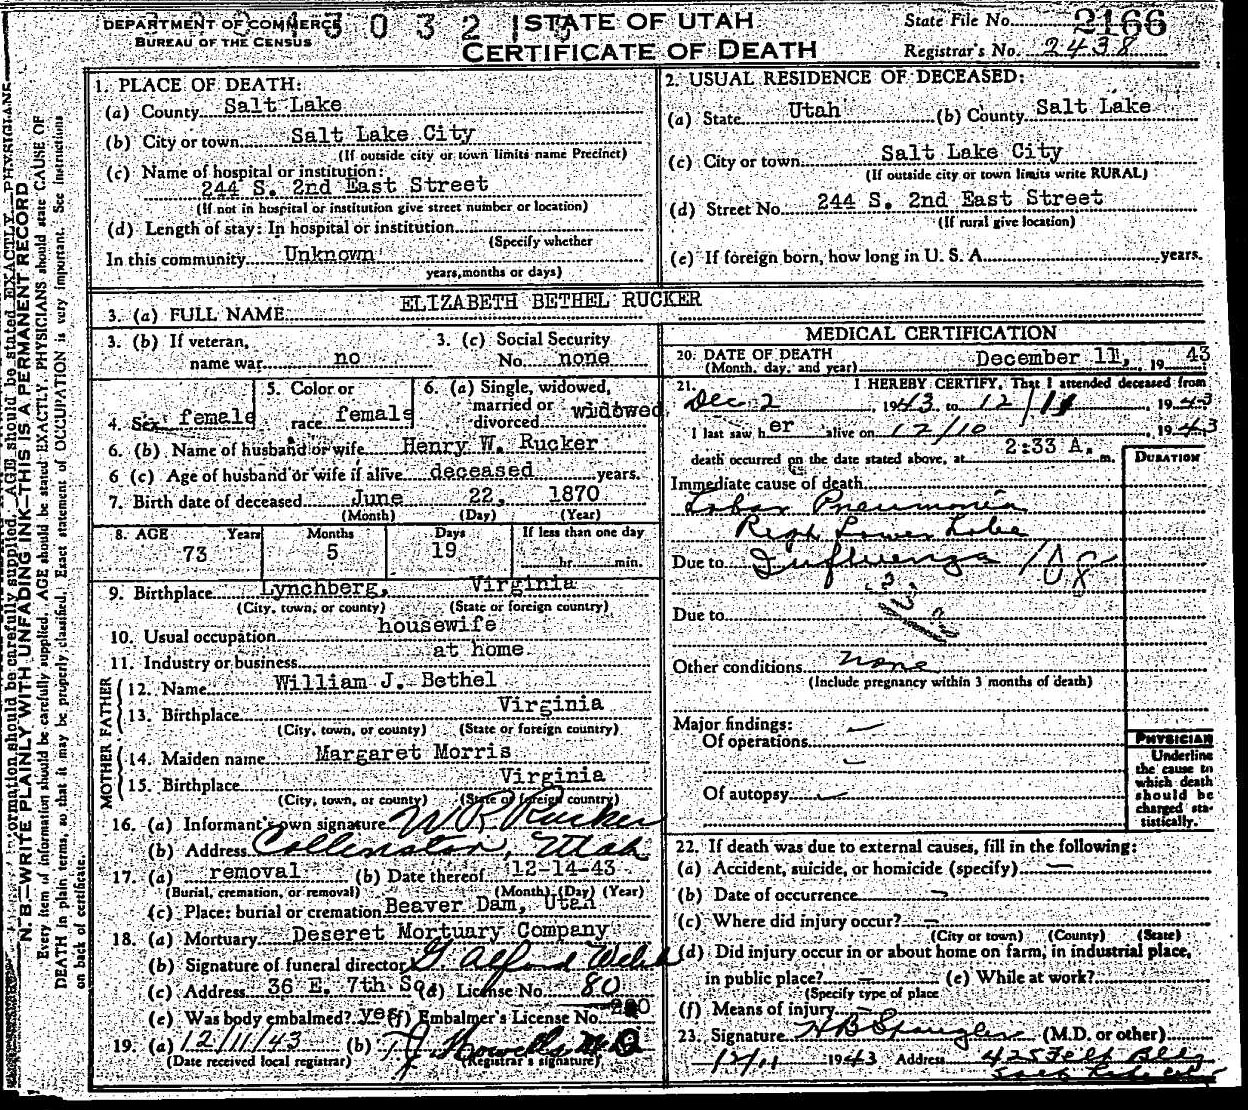 DEPARTMENT OF COMMERCE
BUREAU OF THE CENSUS
STATE OF UTAH
CERTIFICATE OF DEATH
State File No. 2166
Registrar's No. 2438
N. B.—WRITE PLAINLY WITH UNFADING INK—THIS IS A PERMANENT RECORD
Every item of information should be carefully supplied. AGE should be stated EXACTLY. PHYSICIANS should state CAUSE OF
DEATH in plain terms, so that it may be properly classified. Exact statement of OCCUPATION is very important. See Instructions
on back of certificate.
1. PLACE OF DEATH:
(a) County Salt Lake
(b) City or town Salt Lake City
(If outside city or town limits name Precinct)
(c) Name of hospital or institution:
244 S. 2nd East Street
(If not in hospital or institution give street number or location)
(d) Length of stay: In hospital or institution
(Specify whether
In this community Unknown
years, months or days)
2. USUAL RESIDENCE OF DECEASED:
(a) State Utah (b) County Salt Lake
(c) City or town Salt Lake City
(If outside city or town limits write RURAL)
(d) Street No. 244 S. 2nd East Street
(If rural give location)
(e) If foreign born, how long in U. S. A. years.
3. (a) FULL NAME ELIZABETH BETHEL RUCKER
3. (b) If veteran, name war no
3. (c) Social Security No. none
4. Sex female
5. Color or race female
6. (a) Single, widowed, married or divorced widowed
6. (b) Name of husband or wife Henry W. Rucker
6 (c) Age of husband or wife if alive deceased years.
7. Birth date of deceased June 22, 1870
(Month) (Day) (Year)
8. AGE Years Months Days If less than one day
73 5 19 hr. min.
9. Birthplace Lynchberg, Virginia
(City, town, or county) (State or foreign country)
10. Usual occupation housewife
11. Industry or business at home
FATHER
12. Name William J. Bethel
13. Birthplace Virginia
(City, town, or county) (State or foreign country)
MOTHER
14. Maiden name Margaret Morris
15. Birthplace Virginia
(City, town, or county) (State or foreign country)
16. (a) Informant's own signature W R Rucker
(b) Address Collinston, Utah
17. (a) removal (b) Date thereof 12-14-43
(Burial, cremation, or removal) (Month) (Day) (Year)
(c) Place: burial or cremation Beaver Dam, Utah
18. (a) Mortuary Deseret Mortuary Company
(b) Signature of funeral director
(c) Address 36 E. 7th So. (d) License No. 80
(e) Was body embalmed? yes (f) Embalmer's License No.
19. (a) 12/11/43 (b) T J Howells M D
(Date received local registrar) (Registrar's signature)
MEDICAL CERTIFICATION
20. DATE OF DEATH December 11, 1943
(Month, day, and year)
21. I HEREBY CERTIFY, That I attended deceased from
Dec 2, 1943 to 12/11, 1943
I last saw her alive on 12/10, 1943
death occurred on the date stated above, at 2:33 A. m.
DURATION
Immediate cause of death
Lobar Pneumonia
Righ Lower Lobe
Due to Influenza 108
Due to
Other conditions none
(Include pregnancy within 3 months of death)
Major findings:
Of operations
Of autopsy
PHYSICIAN
Underline
the cause to
which death
should be
charged sta-
tistically.
22. If death was due to external causes, fill in the following:
(a) Accident, suicide, or homicide (specify) —
(b) Date of occurrence —
(c) Where did injury occur? —
(City or town) (County) (State)
(d) Did injury occur in or about home on farm, in industrial place,
in public place? — (e) While at work?
(Specify type of place
(f) Means of injury
23. Signature H B Spangler (M.D. or other)
12/11 1943 Address 425 Felt Bldg
Salt Lake City